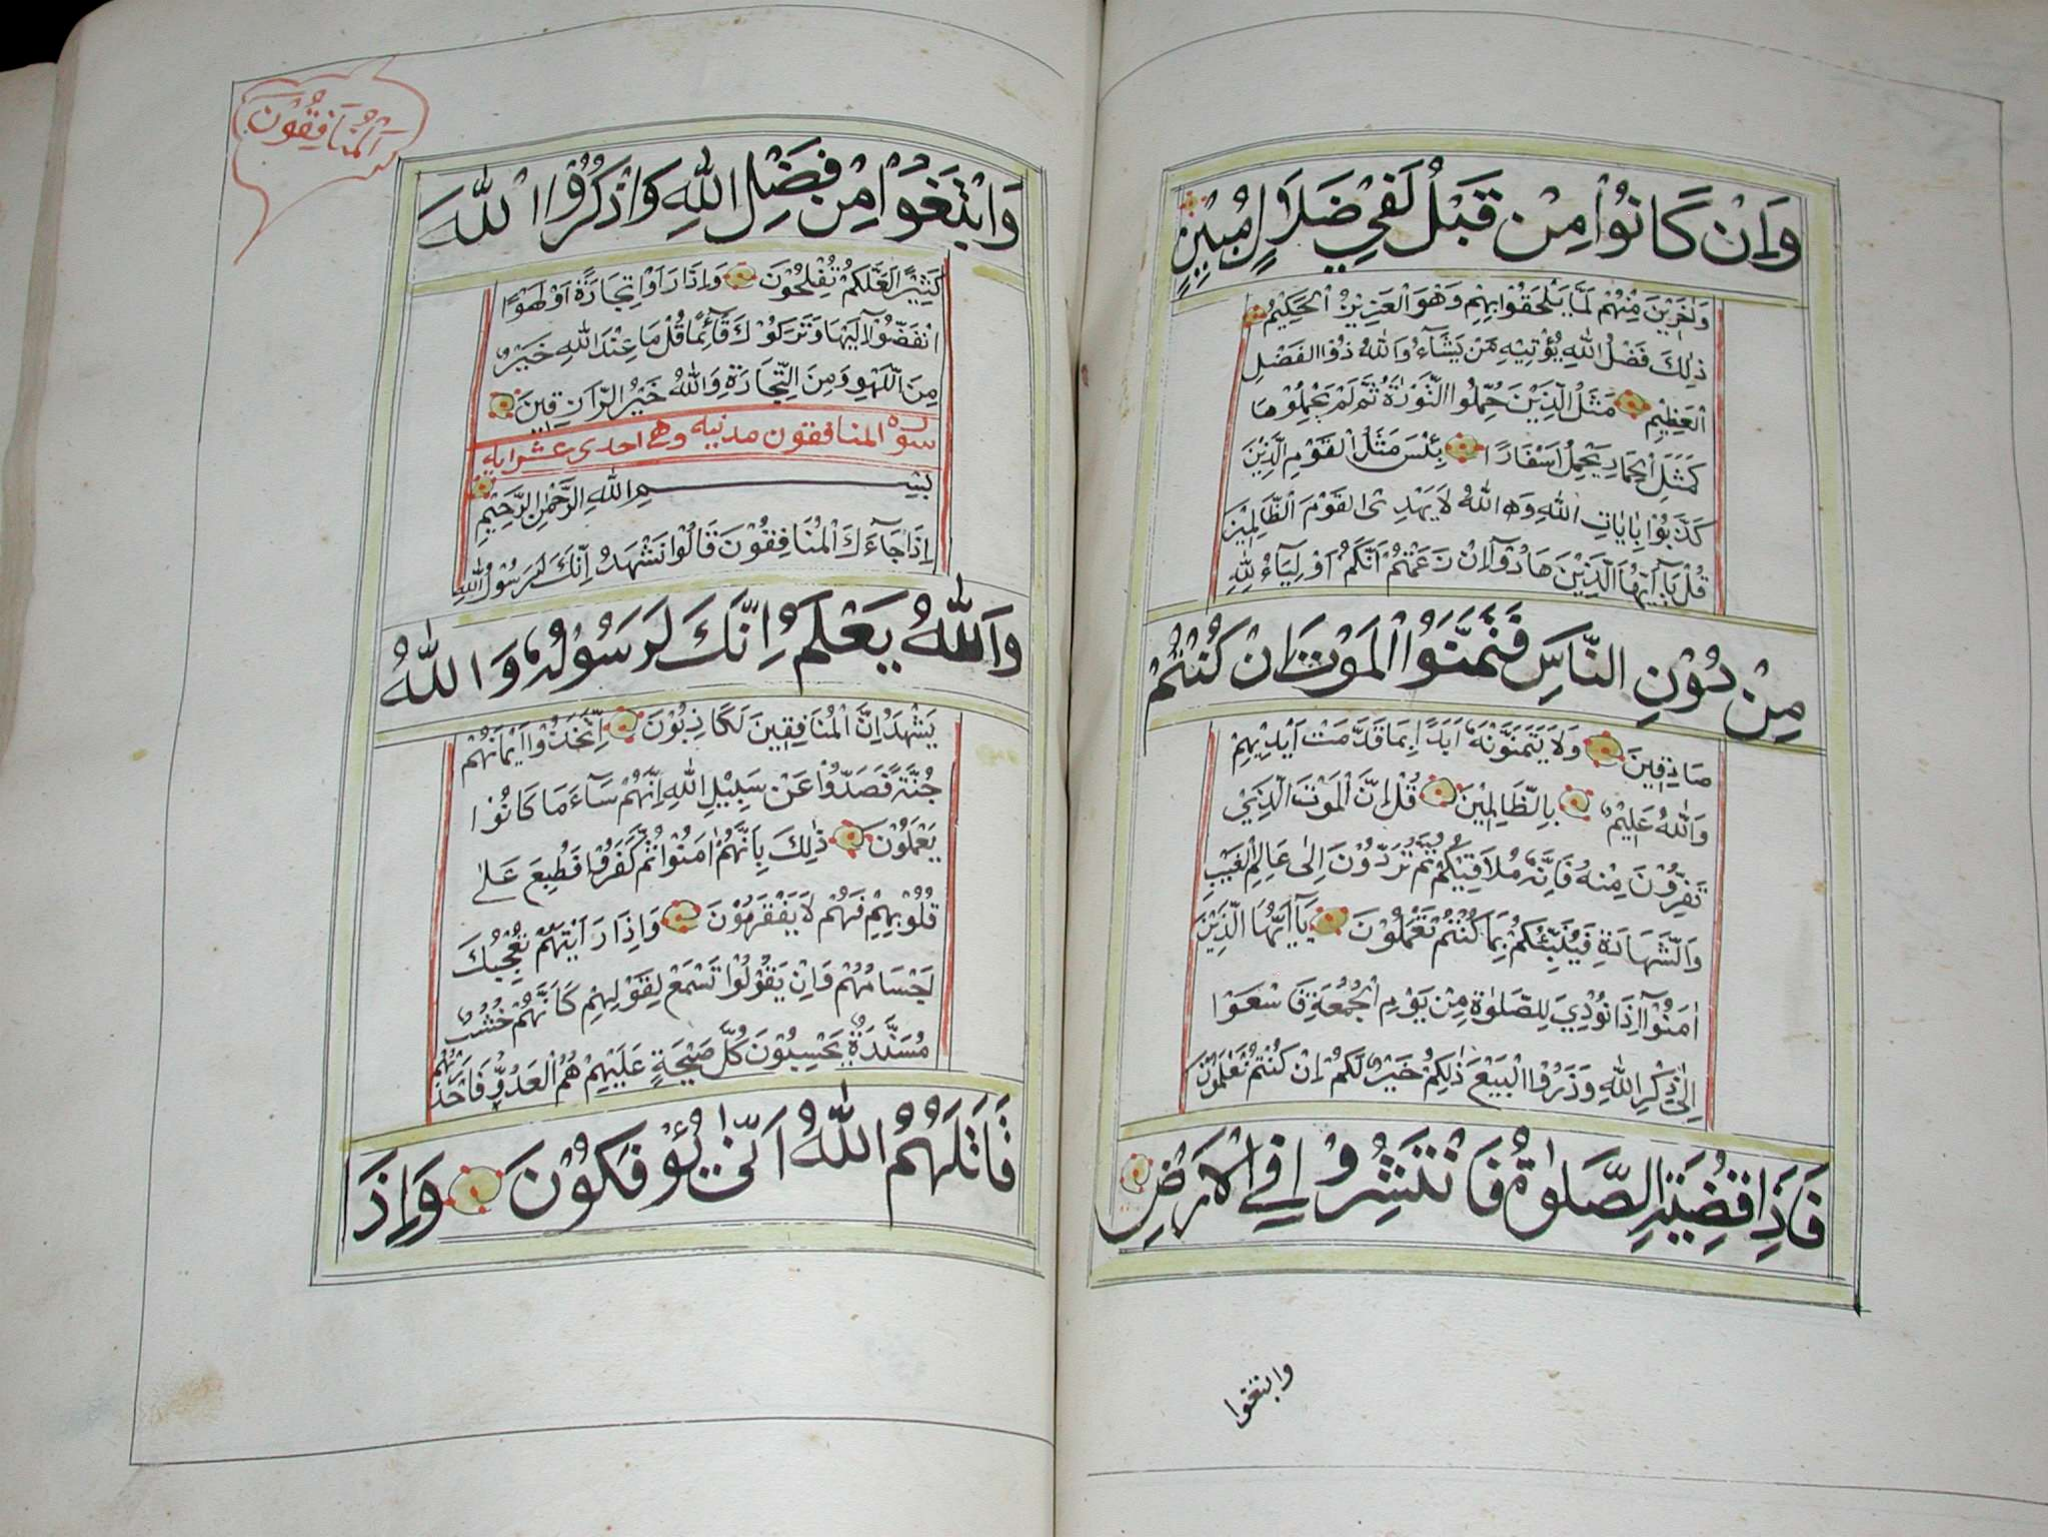 وَاِنْ كَانُوْا مِنْ قَبْلُ لَفِيْ ضَلَالٍ مُبِيْنٍ
وَاٰخَرِيْنَ مِنْهُمْ لَمَّا يَلْحَقُوْا بِهِمْ وَهُوَ الْعَزِيْزُ الْحَكِيْمُ
ذٰلِكَ فَضْلُ اللهِ يُؤْتِيْهِ مَنْ يَشَآءُ وَاللهُ ذُوا الفَضْلِ
الْعَظِيْمِ مَثَلُ الَّذِيْنَ حُمِّلُوا التَّوْرٰةَ ثُمَّ لَمْ يَحْمِلُوْهَا
كَمَثَلِ الْحِمَارِ يَحْمِلُ اَسْفَارًا بِئْسَ مَثَلُ الْقَوْمِ الَّذِيْنَ
كَذَّبُوْا بِاٰيَاتِ اللهِ وَاللهُ لَا يَهْدِى الْقَوْمَ الظَّالِمِيْنَ
قُلْ يَآ اَيُّهَا الَّذِيْنَ هَادُوْآ اِنْ زَعَمْتُمْ اَنَّكُمْ اَوْلِيَآءُ لِلّٰهِ
مِنْ دُوْنِ النَّاسِ فَتَمَنَّوُا الْمَوْتَ اِنْ كُنْتُمْ
صَادِقِيْنَ وَلَا يَتَمَنَّوْنَهُ اَبَدًا بِمَا قَدَّمَتْ اَيْدِيْهِمْ
وَاللهُ عَلِيْمٌ بِالظَّالِمِيْنَ قُلْ اِنَّ الْمَوْتَ الَّذِيْ
تَفِرُّوْنَ مِنْهُ فَاِنَّهُ مُلَاقِيْكُمْ ثُمَّ تُرَدُّوْنَ اِلٰى عَالِمِ الْغَيْبِ
وَالشَّهَادَةِ فَيُنَبِّئُكُمْ بِمَا كُنْتُمْ تَعْمَلُوْنَ يَآ اَيُّهَا الَّذِيْنَ
اٰمَنُوْآ اِذَا نُوْدِيَ لِلصَّلٰوةِ مِنْ يَوْمِ الْجُمُعَةِ فَاسْعَوْا
اِلٰى ذِكْرِ اللهِ وَذَرُوْا الْبَيْعَ ذٰلِكُمْ خَيْرٌ لَكُمْ اِنْ كُنْتُمْ تَعْلَمُوْنَ
فَاِذَا قُضِيَتِ الصَّلٰوةُ فَانْتَشِرُوْا فِي الْاَرْضِ
وابتغوا
اَلْمُنَافِقُوْنَ
وَابْتَغُوْا مِنْ فَضْلِ اللهِ وَاذْكُرُوْا اللهَ
كَثِيْرًا لَعَلَّكُمْ تُفْلِحُوْنَ وَاِذَا رَاَوْا تِجَارَةً اَوْ لَهْوًا
انْفَضُّوْآ اِلَيْهَا وَتَرَكُوْكَ قَآئِمًا قُلْ مَا عِنْدَ اللهِ خَيْرٌ
مِنَ اللَّهْوِ وَمِنَ التِّجَارَةِ وَاللهُ خَيْرُ الرَّازِقِيْنَ
سورة المنافقون مدنيه وهى احدى عشر ايه
بِسْمِ اللهِ الرَّحْمٰنِ الرَّحِيْمِ
اِذَا جَآءَكَ الْمُنَافِقُوْنَ قَالُوْا نَشْهَدُ اِنَّكَ لَرَسُوْلُ اللهِ
وَاللهُ يَعْلَمُ اِنَّكَ لَرَسُوْلُهُ وَاللهُ
يَشْهَدُ اِنَّ الْمُنَافِقِيْنَ لَكَاذِبُوْنَ اِتَّخَذُوْا اَيْمَانَهُمْ
جُنَّةً فَصَدُّوْا عَنْ سَبِيْلِ اللهِ اِنَّهُمْ سَآءَ مَا كَانُوْا
يَعْمَلُوْنَ ذٰلِكَ بِاَنَّهُمْ اٰمَنُوْا ثُمَّ كَفَرُوْا فَطُبِعَ عَلٰى
قُلُوْبِهِمْ فَهُمْ لَا يَفْقَهُوْنَ وَاِذَا رَاَيْتَهُمْ تُعْجِبُكَ
اَجْسَامُهُمْ وَاِنْ يَقُوْلُوْا تَسْمَعْ لِقَوْلِهِمْ كَاَنَّهُمْ خُشُبٌ
مُسَنَّدَةٌ يَحْسِبُوْنَ كُلَّ صَيْحَةٍ عَلَيْهِمْ هُمُ الْعَدُوُّ فَاحْذَرْهُمْ
قَاتَلَهُمُ اللهُ اَنّٰى يُؤْفَكُوْنَ وَاِذَا